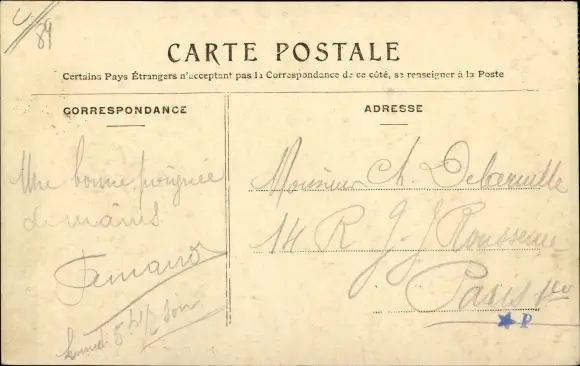 89
CARTE POSTALE
Certains Pays Étrangers n'acceptant pas la Correspondance de ce côté, se renseigner à la Poste
CORRESPONDANCE
Une bonne poignée
de mains
Fernand
5 h 1/2 soir
ADRESSE
Monsieur Ch.
14 R J-J Rousseau
Paris 1er
★ P